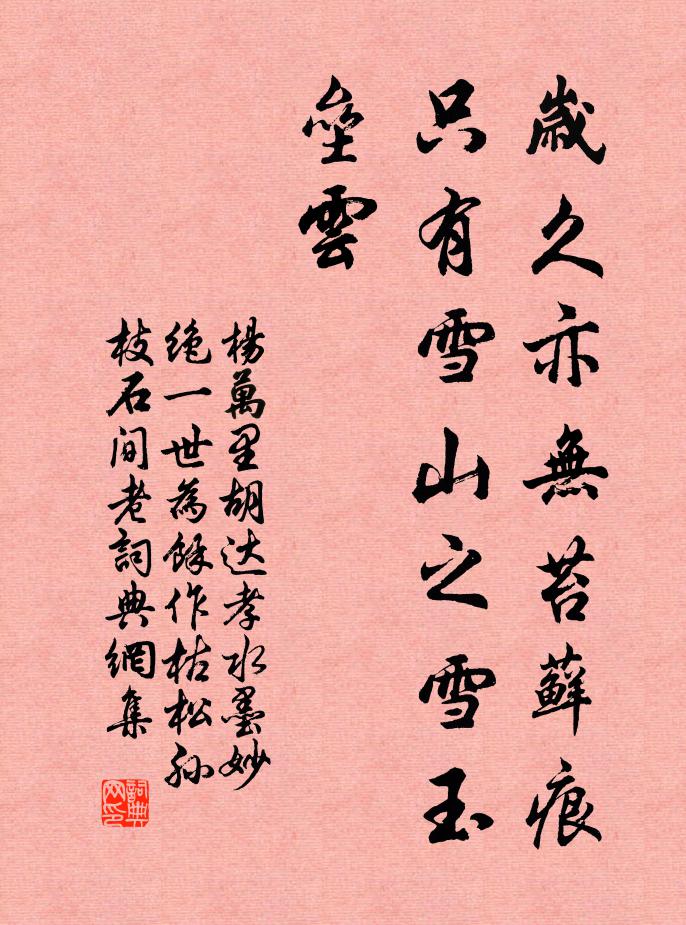 歲久亦無苔蘚痕
只有雪山之雪玉
壘雲
楊萬里胡达孝水墨妙
絶一世為餘作枯松孙
枝石间老詞典網集
詞典
网印